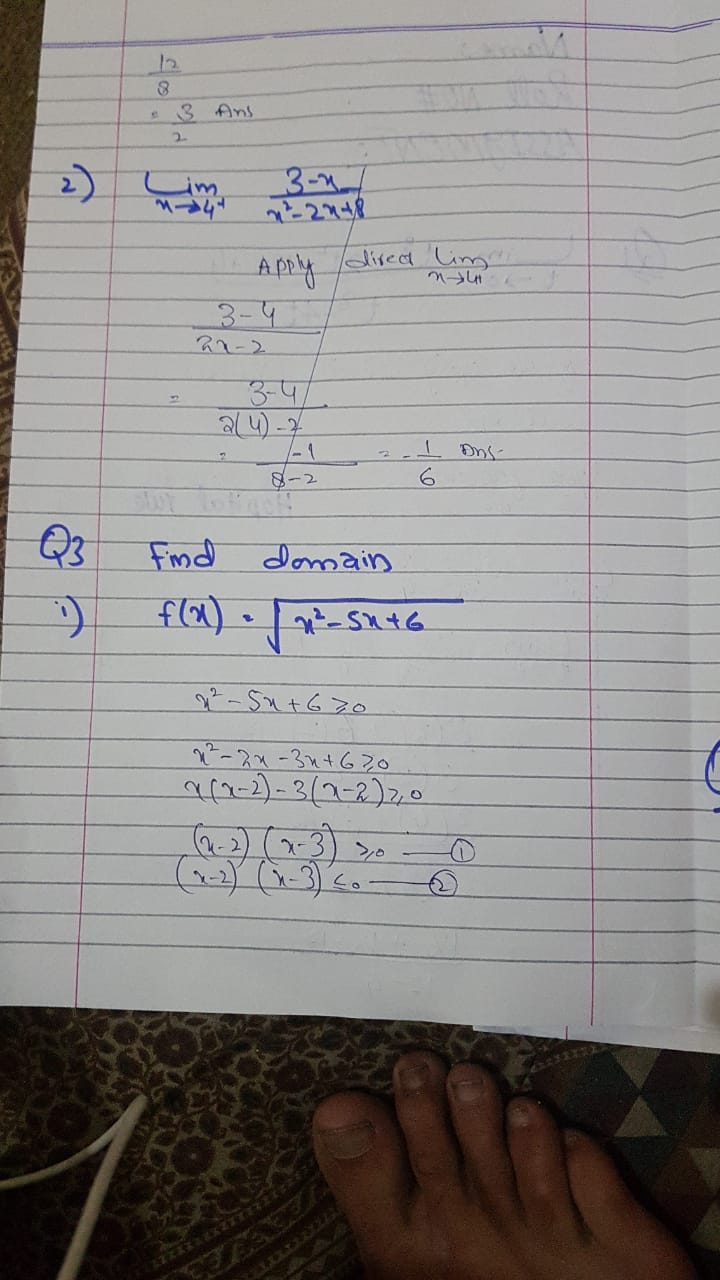 12
8
= 3 Ans
2
2) Lim 3-x
x→4+ x²-2x+8
Apply direct lim
x→4+
3-4
2x-2
= 3-4
2(4)-2
= -1 = -1 Ans-
8-2 6
Q3 Find domain
i) f(x) = √x²-5x+6
x²-5x+6≥0
x²-2x-3x+6≥0
x(x-2)-3(x-2)≥0
(x-2) (x-3) ≥0 — ①
(x-2) (x-3) ≤0 — ②